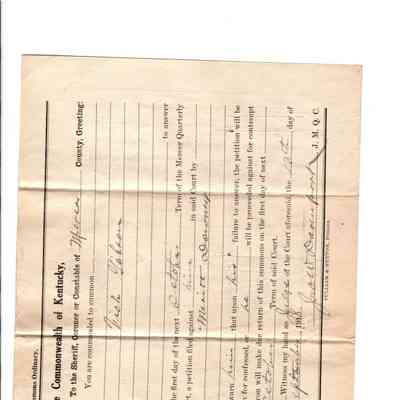 mons Ordinary.
e Commonwealth of Kentucky,
To the Sheriff, Coroner or Constable of Mercer County, Greeting:
You are commanded to summon
to answer
he first day of the next October Term of the Mercer Quarterly
t, a petition filed against him in said Court by
Merritt
urn him that upon his failure to answer, the petition will be
for confessed, or he will be proceeded against for contempt
you will make due return of this summons on the first day of next
October Term of said Court.
Witness my hand as Judge of the Court aforesaid, the day of
September 191
J. M. Q. C.